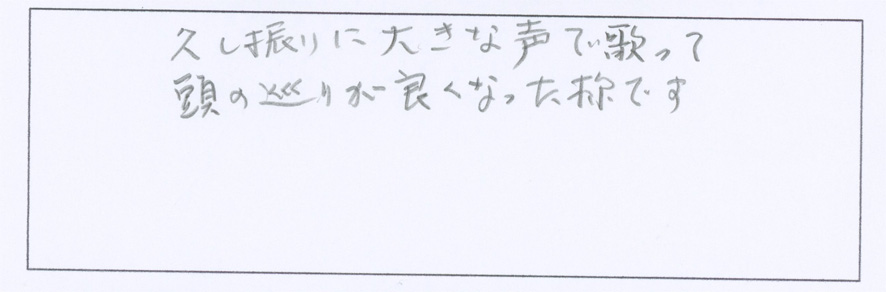 久し振りに大きな声で歌って
頭の巡りが良くなった様です